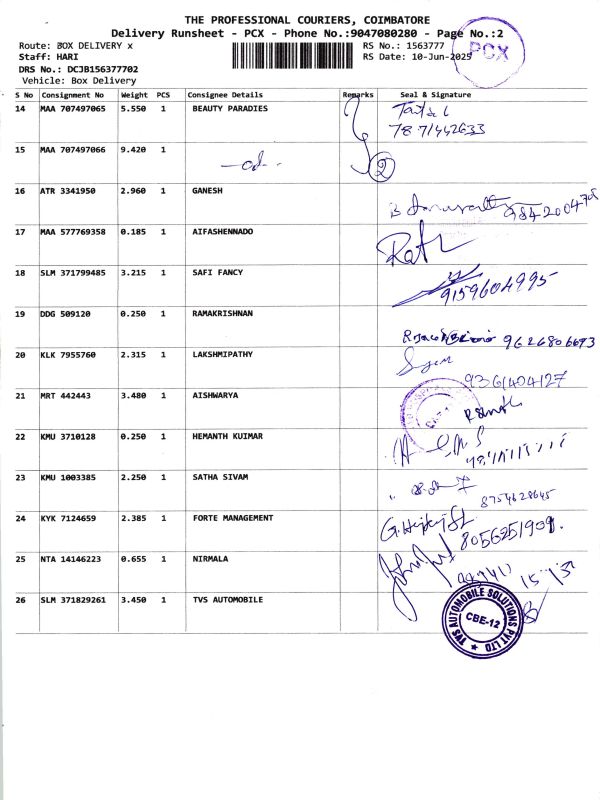 THE PROFESSIONAL COURIERS, COIMBATORE
Delivery Runsheet - PCX - Phone No.:9047080280 - Page No.:2
Route: BOX DELIVERY x
RS No.: 1563777
Staff: HARI
RS Date: 10-Jun-2025
PCX
DRS No.: DCJB156377702
Vehicle: Box Delivery
S No Consignment No Weight PCS Consignee Details Remarks Seal & Signature
14 MAA 707497065 5.550 1 BEAUTY PARADIES
7871442633
15 MAA 707497066 9.420 1
2
16 ATR 3341950 2.960 1 GANESH
17 MAA 577769358 0.185 1 AIFASHENNADO
18 SLM 371799485 3.215 1 SAFI FANCY
9159604995
19 DDG 509120 0.250 1 RAMAKRISHNAN
9626806693
20 KLK 7955760 2.315 1 LAKSHMIPATHY
9361404127
21 MRT 442443 3.480 1 AISHWARYA
22 KMU 3710128 0.250 1 HEMANTH KUIMAR
23 KMU 1003385 2.250 1 SATHA SIVAM
8754628645
24 KYK 7124659 2.385 1 FORTE MANAGEMENT
8056251909.
25 NTA 14146223 0.655 1 NIRMALA
26 SLM 371829261 3.450 1 TVS AUTOMOBILE
TVS AUTOMOBILE SOLUTIONS PVT LTD
CBE-12